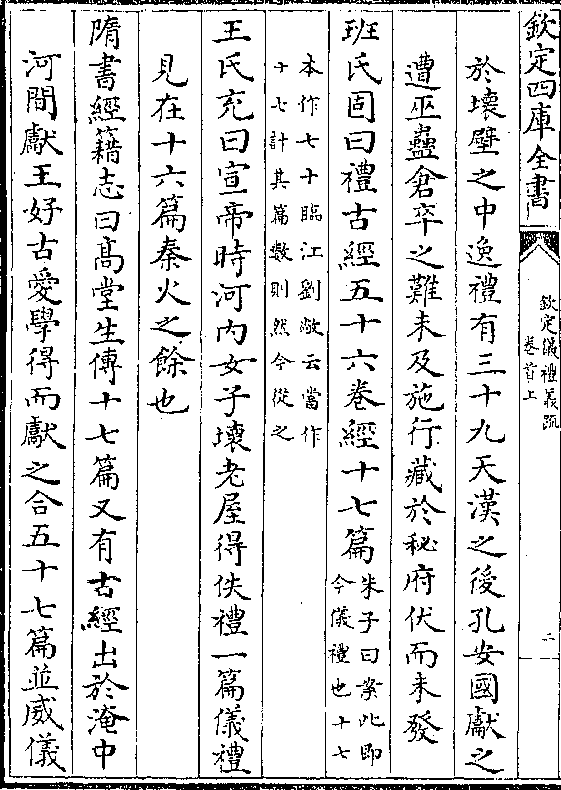 欽定四庫全書
欽定儀禮義疏
卷首上
二
於壞壁之中逸禮有三十九天漢之後孔安國獻之
遭巫蠱倉卒之難未及施行藏於秘府伏而未發
班氏固曰禮古經五十六卷經十七篇
朱子曰案此即
今儀禮也十七
本作七十臨江劉敞云當作
十七計其篇數則然今從之
王氏充曰宣帝時河內女子壞老屋得佚禮一篇儀禮
見在十六篇秦火之餘也
隋書經籍志曰髙堂生傳十七篇又有古經出於淹中
河間獻王好古愛學得而獻之合五十七篇並威儀